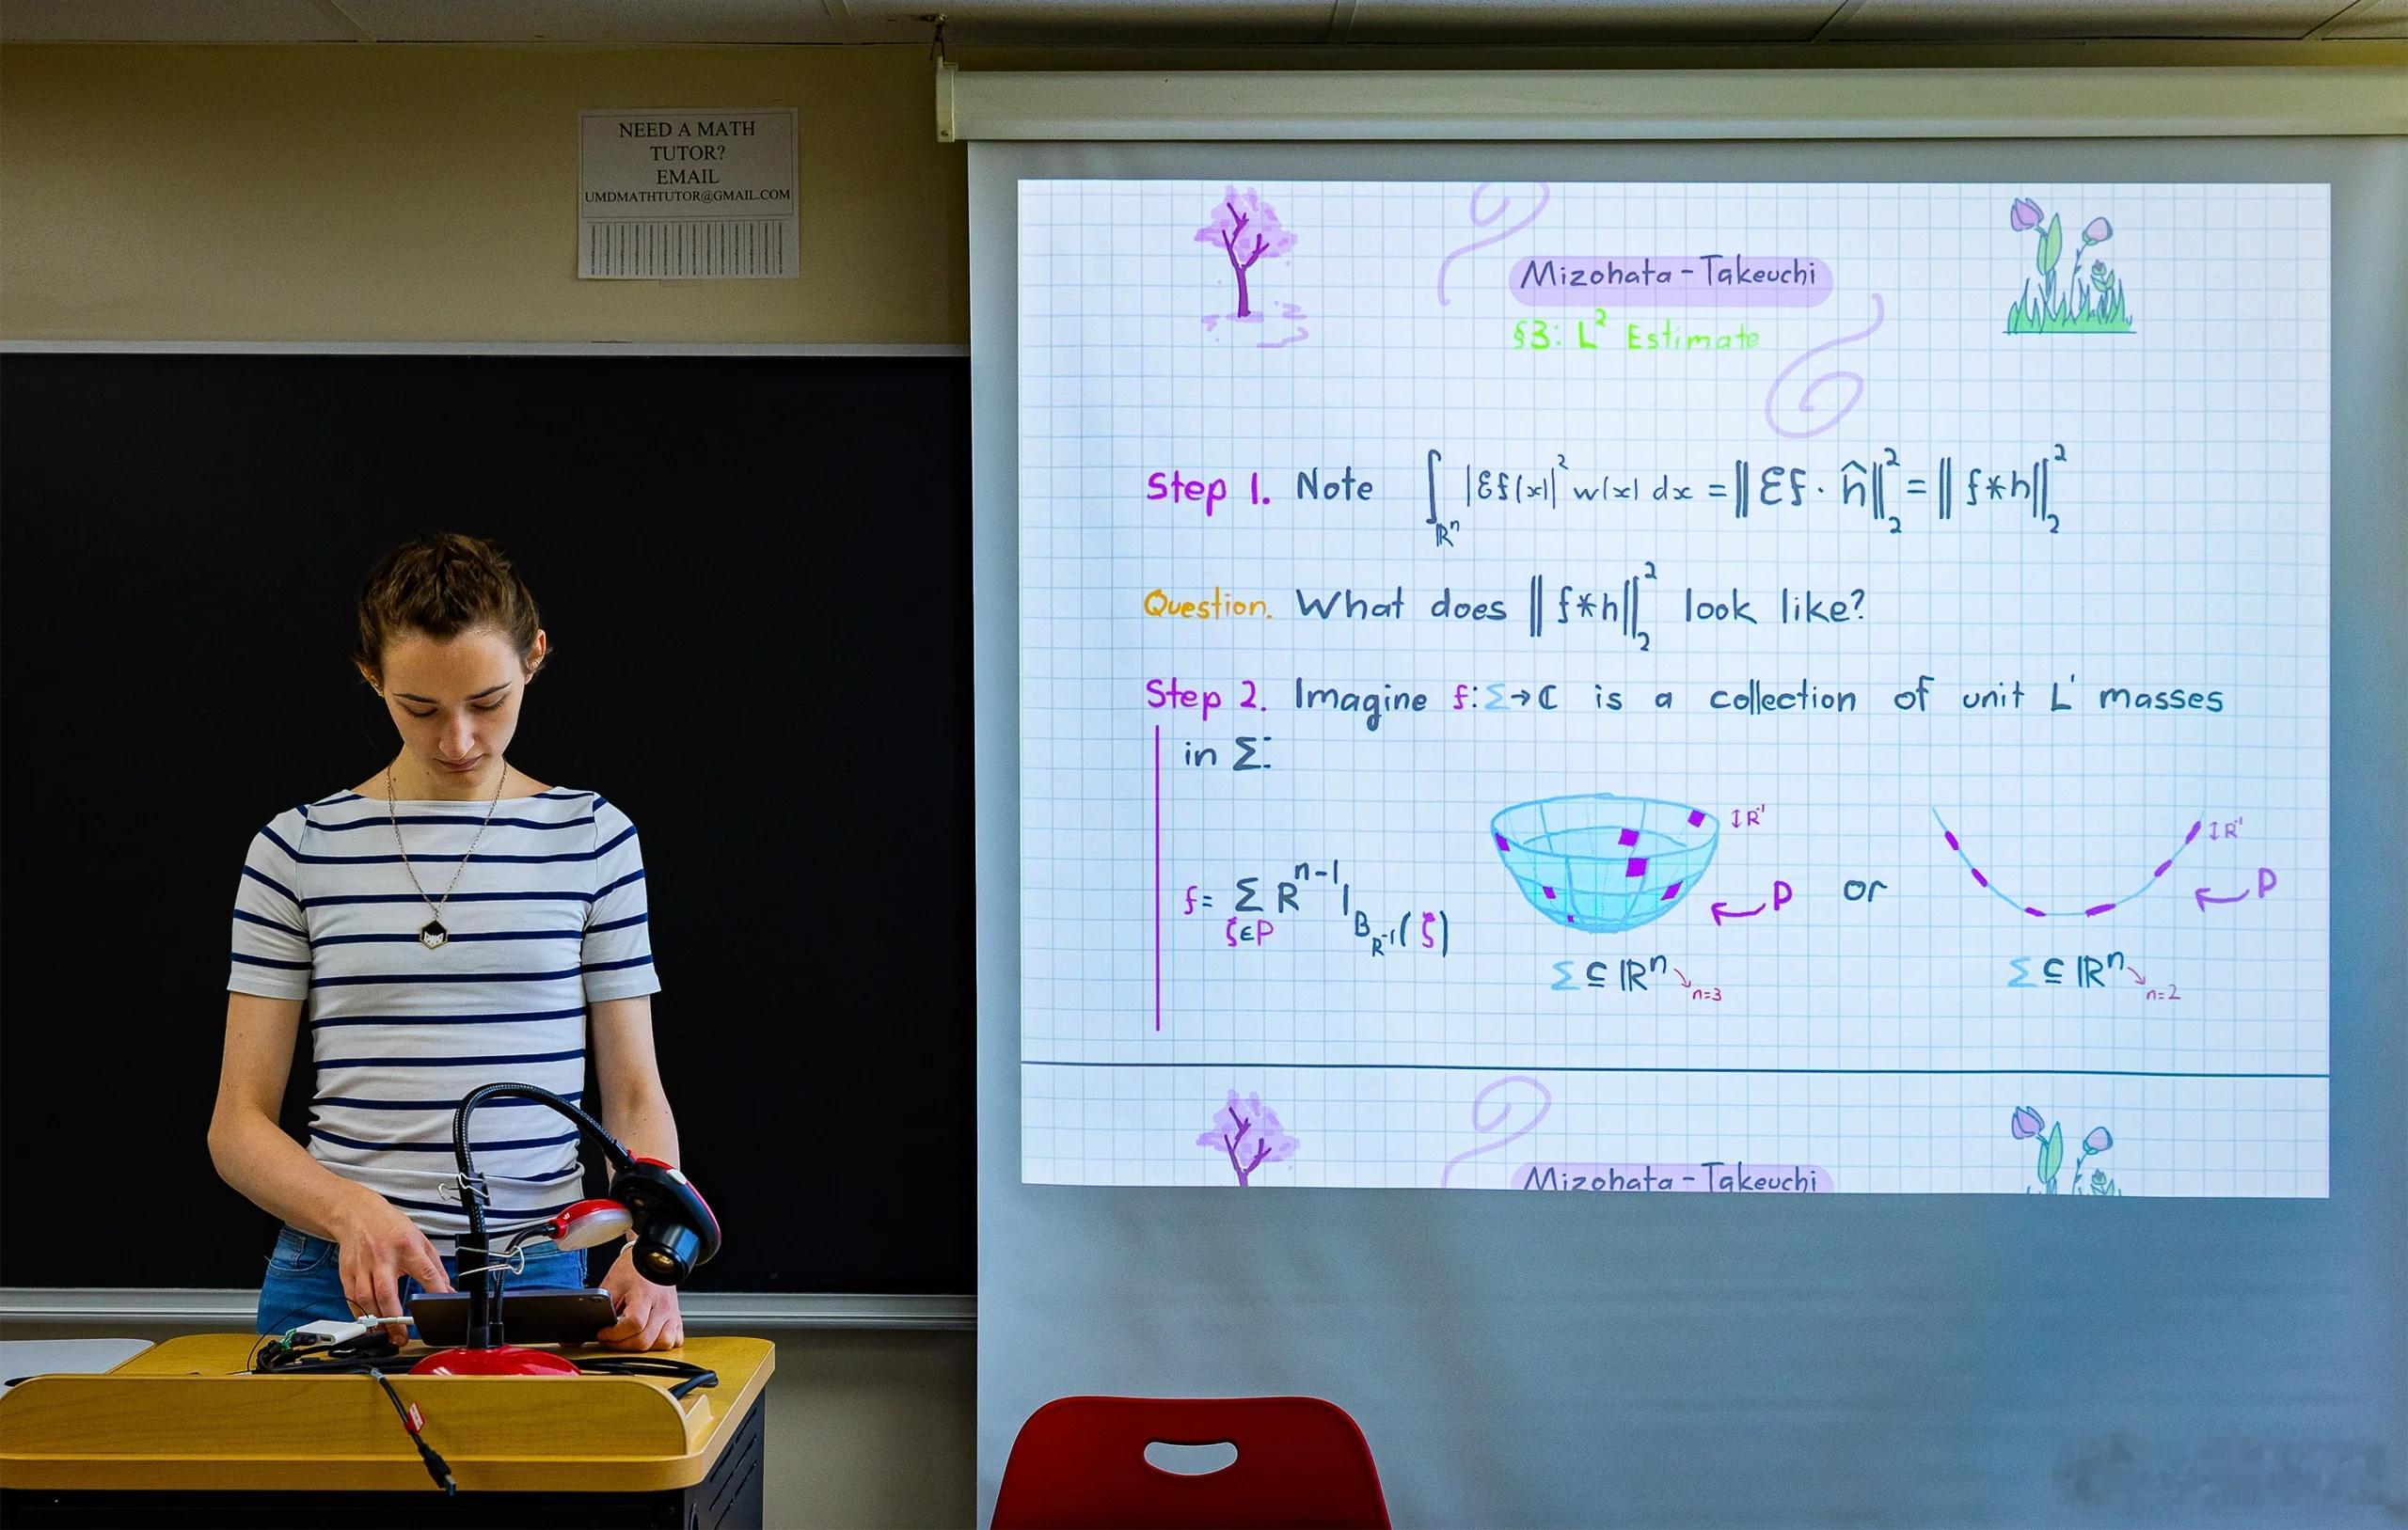 NEED A MATH
TUTOR?
EMAIL
UMDMATHTUTOR@GMAIL.COM
Mizohata-Takeuchi
§3: L² Estimate
Step 1. Note ∫_{ℝⁿ} |Ɛf(x)|² w(x) dx = ‖Ɛf · ĥ‖₂² = ‖f*h‖₂²
Question. What does ‖f*h‖₂² look like?
Step 2. Imagine f: Σ→ℂ is a collection of unit L¹ masses
in Σ:
↕R⁻¹
↕R⁻¹
f = Σ_{ζ∈P} R^{n-1} 1_{B_{R⁻¹}(ζ)}
← P
or
← P
Σ ⊆ ℝⁿ ↘ n=3
Σ ⊆ ℝⁿ ↘ n=2
Mizohata-Takeuchi